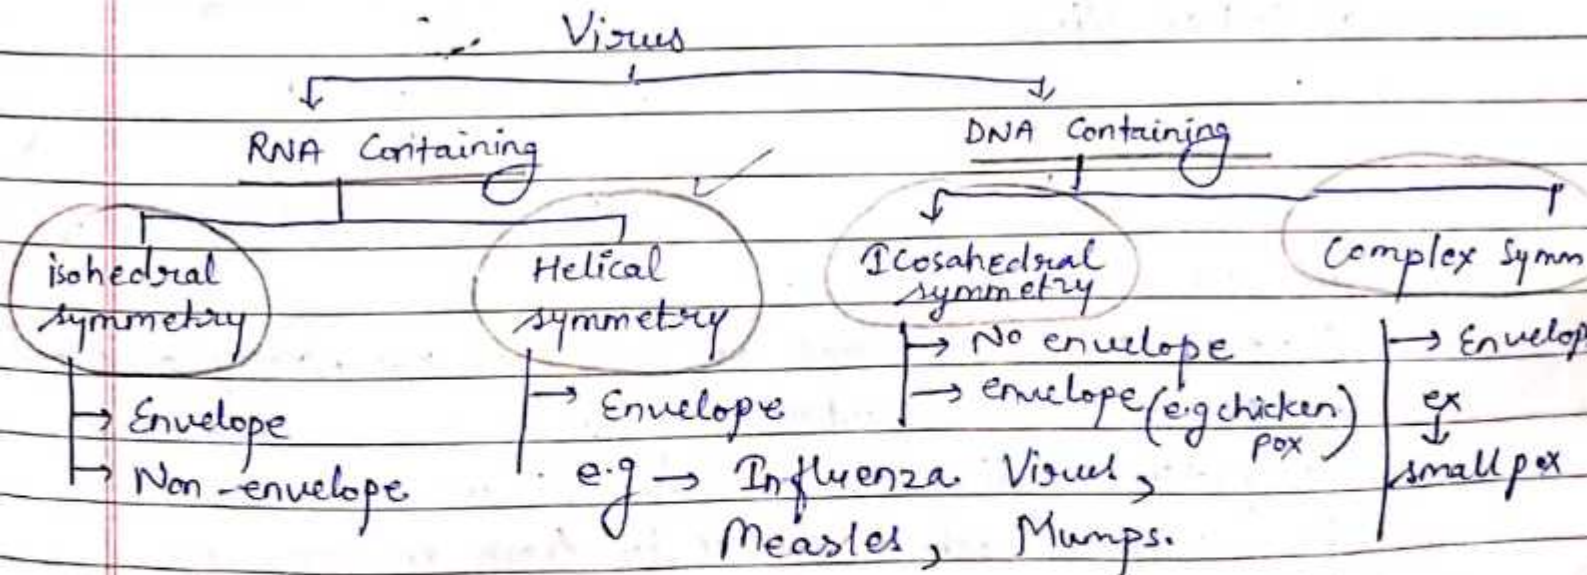 Virus
RNA Containing
DNA Containing
isohedral
symmetry
Helical
symmetry
Icosahedral
symmetry
Complex Symm
→ Envelope
→ Non-envelope
→ Envelope
e.g → Influenza Virus,
Measles, Mumps.
→ No envelope
→ envelope (e.g chicken
pox)
→ Envelop
ex
↓
small pox